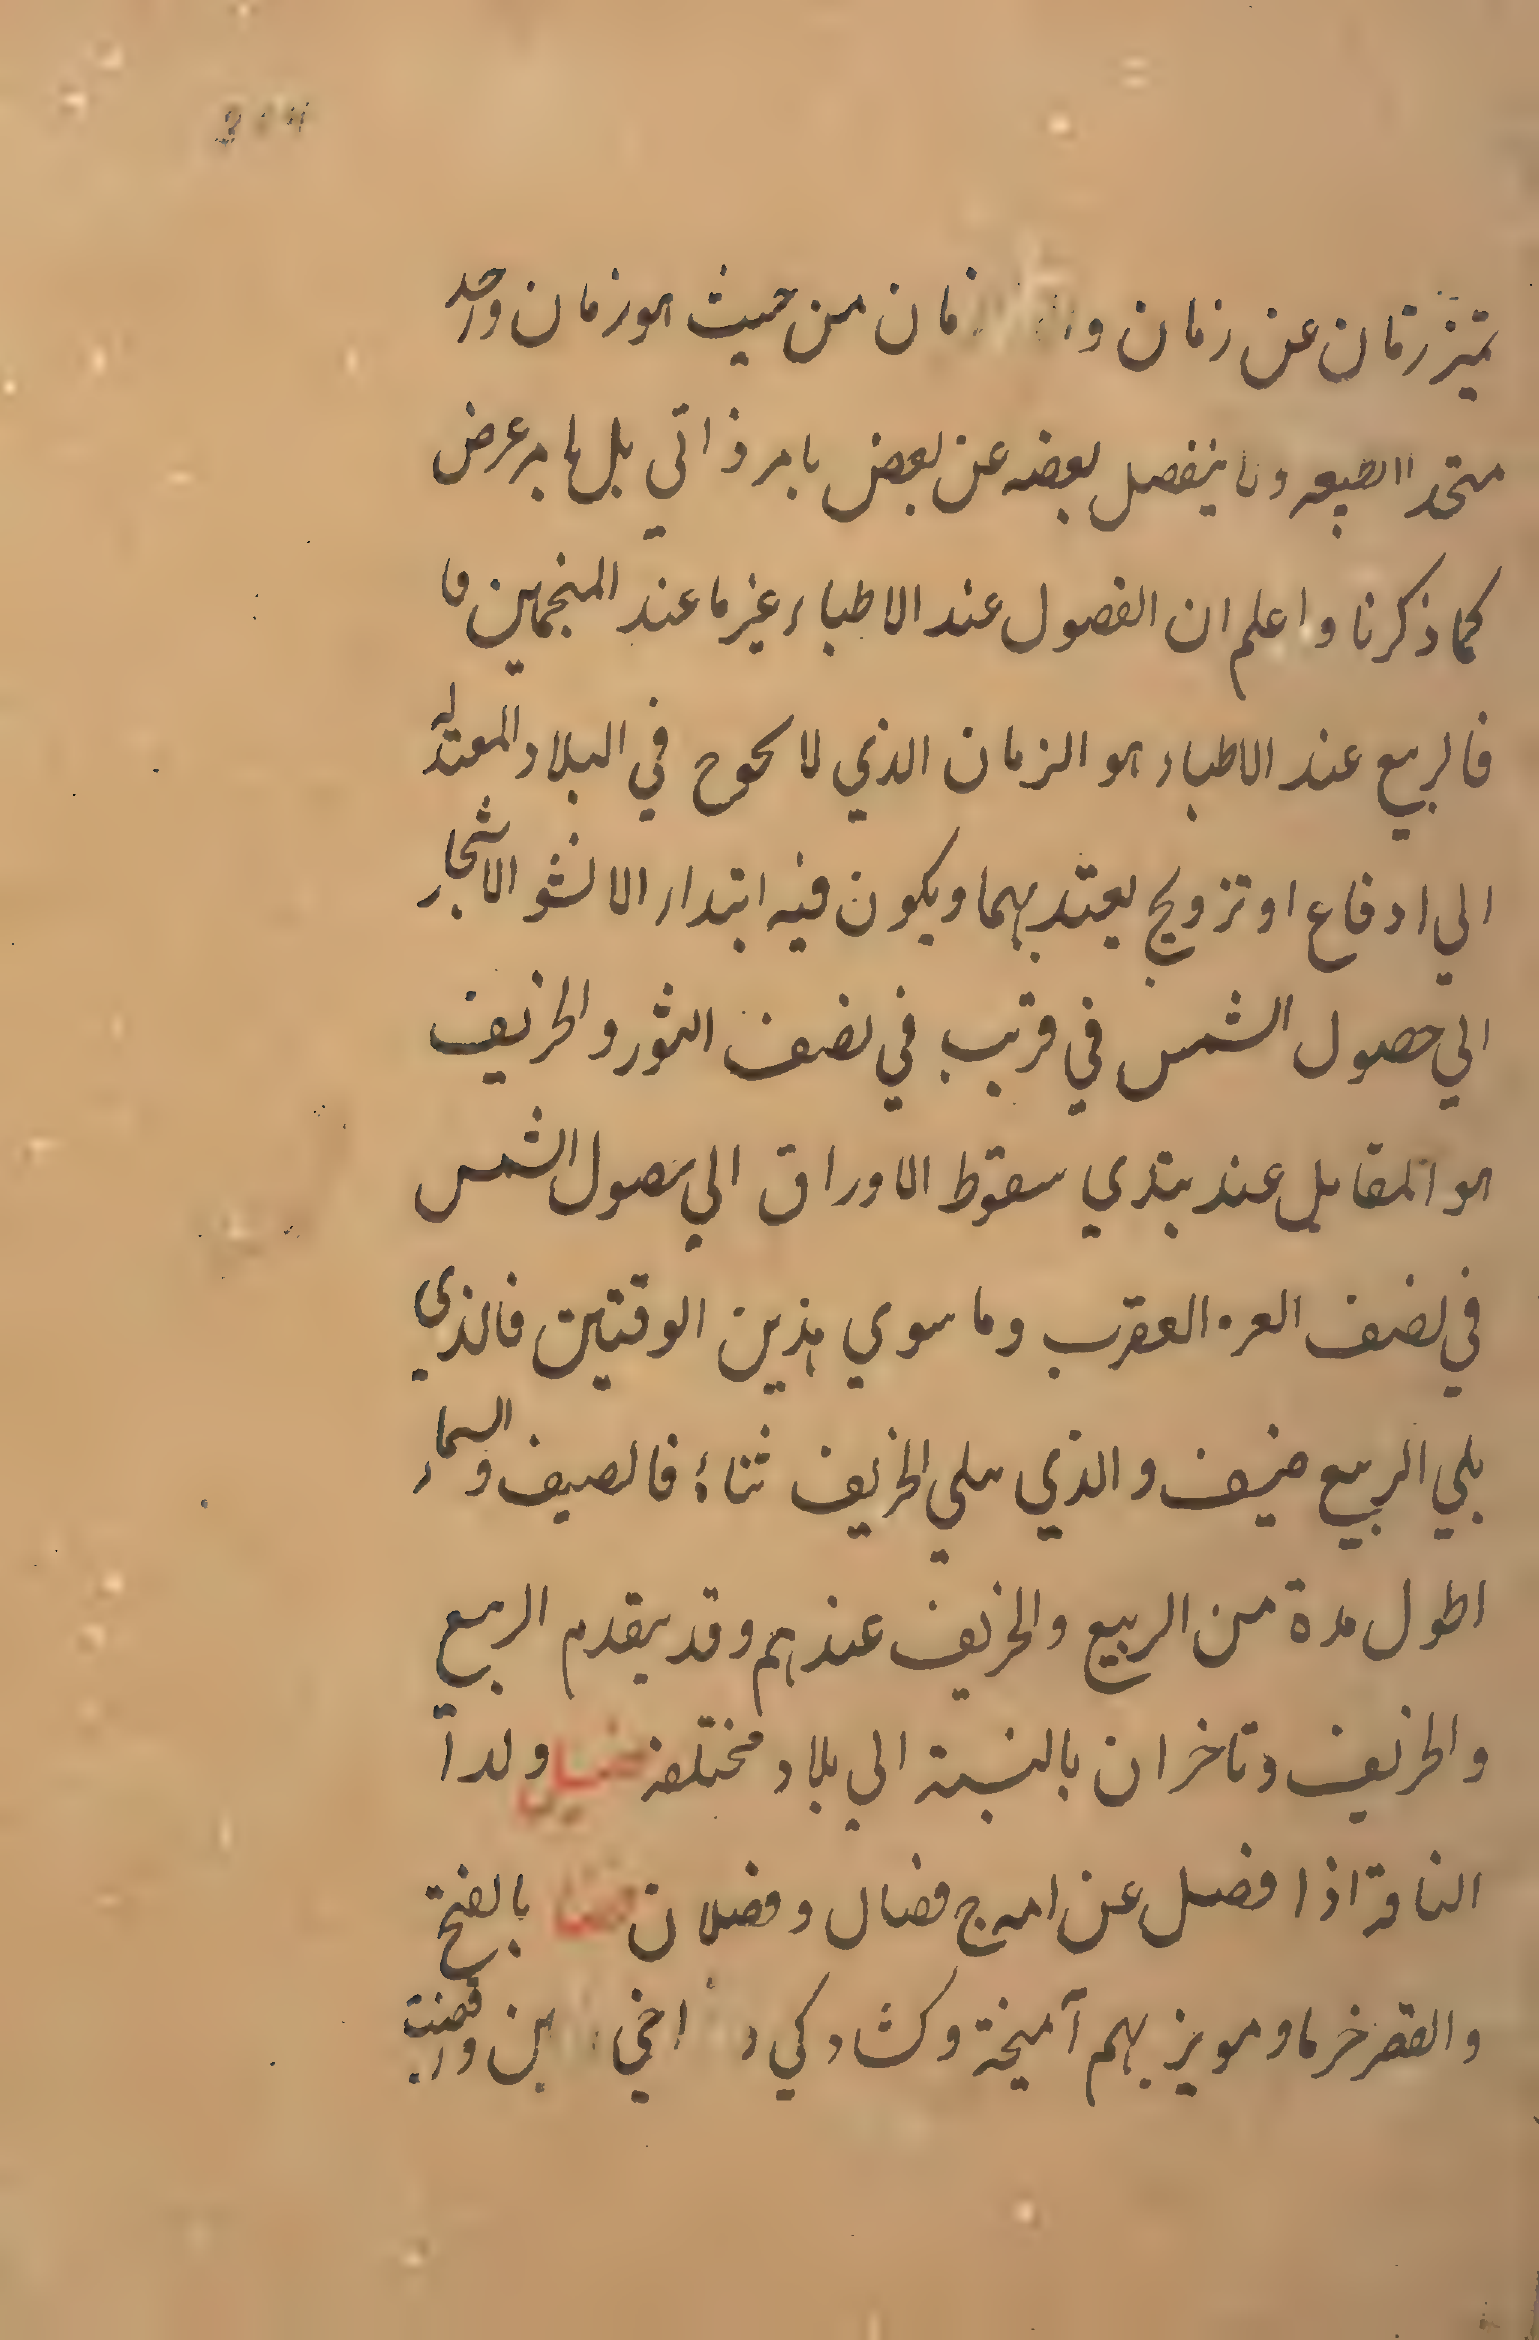 تميز زمان عن زمان و زمان من حيث هو زمان واحد
متحد الطبيعه ولا ينفصل بعضه عن بعض بامر ذاتي بل بامر عرض
كما ذكرنا واعلم ان الفصول عند الاطباء غير ما عند المنجمين
فالربيع عند الاطباء هو الزمان الذي لا يحوج في البلاد المعتدله
الي ادفاع او تزويج يعتد بهما ويكون فيه ابتداء الانشو الاشجار
الي حصول الشمس في قريب في نصف الثور والخريف
هو المقابل عند يبتدي سقوط الاوراق الي حصول الشمس
في نصف العز العقرب وما سوي هذين الوقتين فالذي
يلي الربيع صيف والذي يلي الخريف شتاء فالصيف و السماء
اطول مدة من الربيع والخريف عندهم وقد يتقدم الربيع
والخريف وتاخران بالنسبة الي بلاد مختلفه فصيل ولدا
الناقة اذا فصل عن امه ج فصال وفصلان فضا بالفتح
والقصر خرما و مويز بهم آميخة وكشادكي اخي بين و